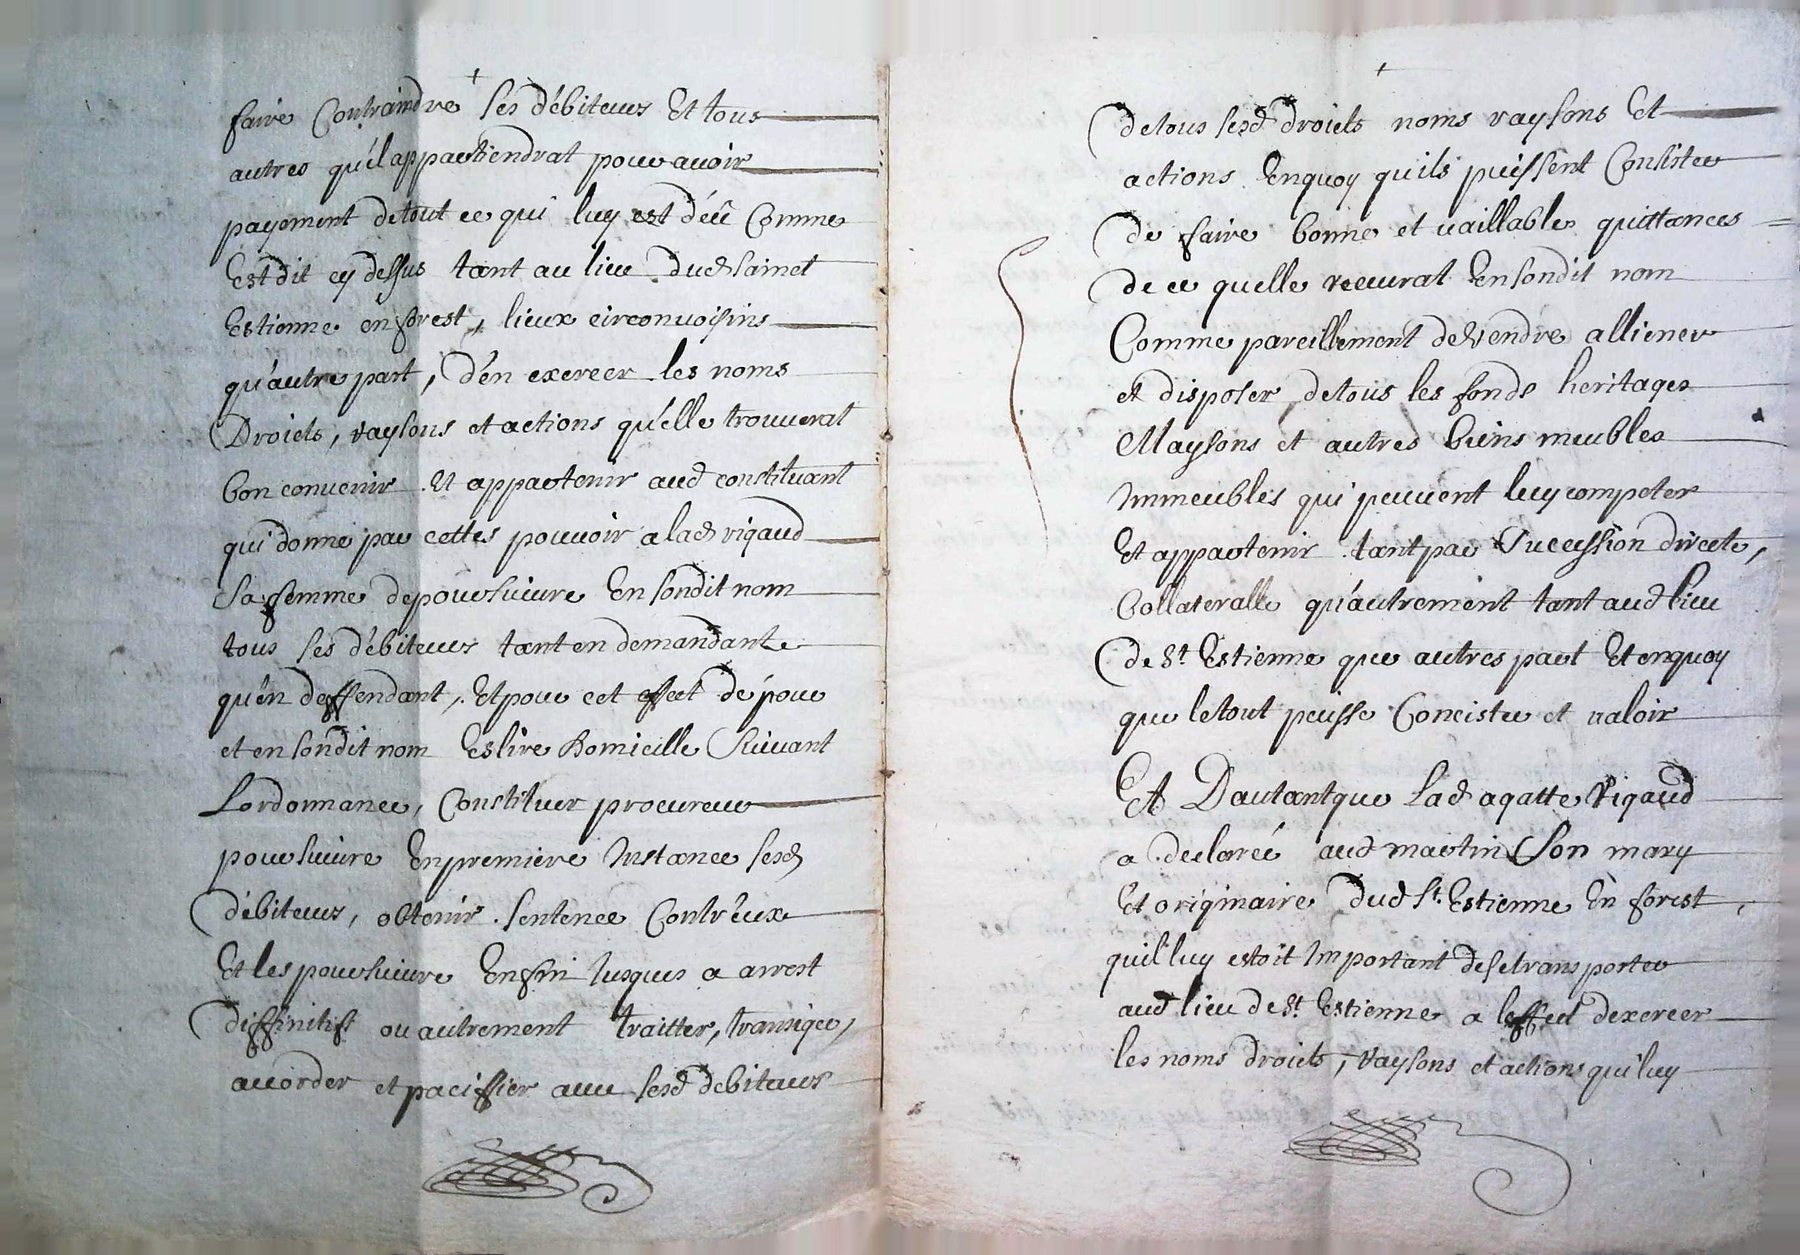 faire Contraindre ses débiteurs Et tous
autres qu'il appartiendrat pour avoir
payement de tout ce qui luy est déü Comme
Est dit cy dessus tant au lieu dud sainct
Estienne en forest, lieux circonuoisins
qu'autre part, d'en exercer les noms
Droicts, raysons et actions qu'elle trouuerat
bon conuenir Et appartenir aud constituant
qui donne par cettes pouuoir a lad rigaud
sa femme de poursuiure En sondit nom
tous ses débiteurs tant en demandant
qu'en deffendant, Et pour cet effect de pour
et en sondit nom Eslire Domicille Suiuant
Lordonnance, Constituer procureur
poursuiure En premiere Instance sesd
débiteurs, obtenir sentence Contr'eux
Et les poursuiure Enfin Jusques a arrest
diffinitif ou autrement traitter, transiger,
accorder et paciffier auec sesd debiteurs
de tous sesd droicts noms raysons Et
actions Enquoy quils puissent Consister
de faire bonne et vaillable quittances
de ce quelle receurat En sondit nom
Comme pareillement de vendre alliener
et disposer de tous les fonds heritages
Maysons et autres biens meubles
Immeubles qui peuuent luy competer
Et appartenir tant par Succession directe,
Collateralle qu'autrement tant aud lieu
de St Estienne que autres part Et enquoy
que le tout puisse Concister et valoir
Et Dautant que Lad agatte Rigaud
a declaréé aud martin Son mary
Et originaire dud St. Estienne En forest,
quil luy estoit Important de se transporter
aud lieu de St. Estienne a leffect dexercer
les noms droicts, raysons et actions qui luy